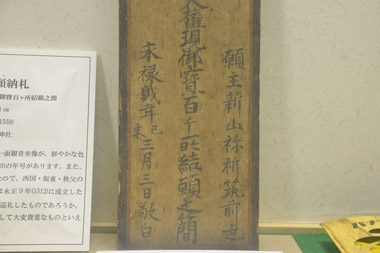 願納札
ヶ所結願之簡
神社
一面観音坐像が、鮮やかな色
の年号があります。また、
なので、西国・坂東・秩父の
は永正9年(1512)に成立した
巡礼したものであろうか。
して大変貴重なものといえ
願主新山祢利筑前
大権現御寶百ヶ所結願之簡
永禄弐年己未三月三日敬白